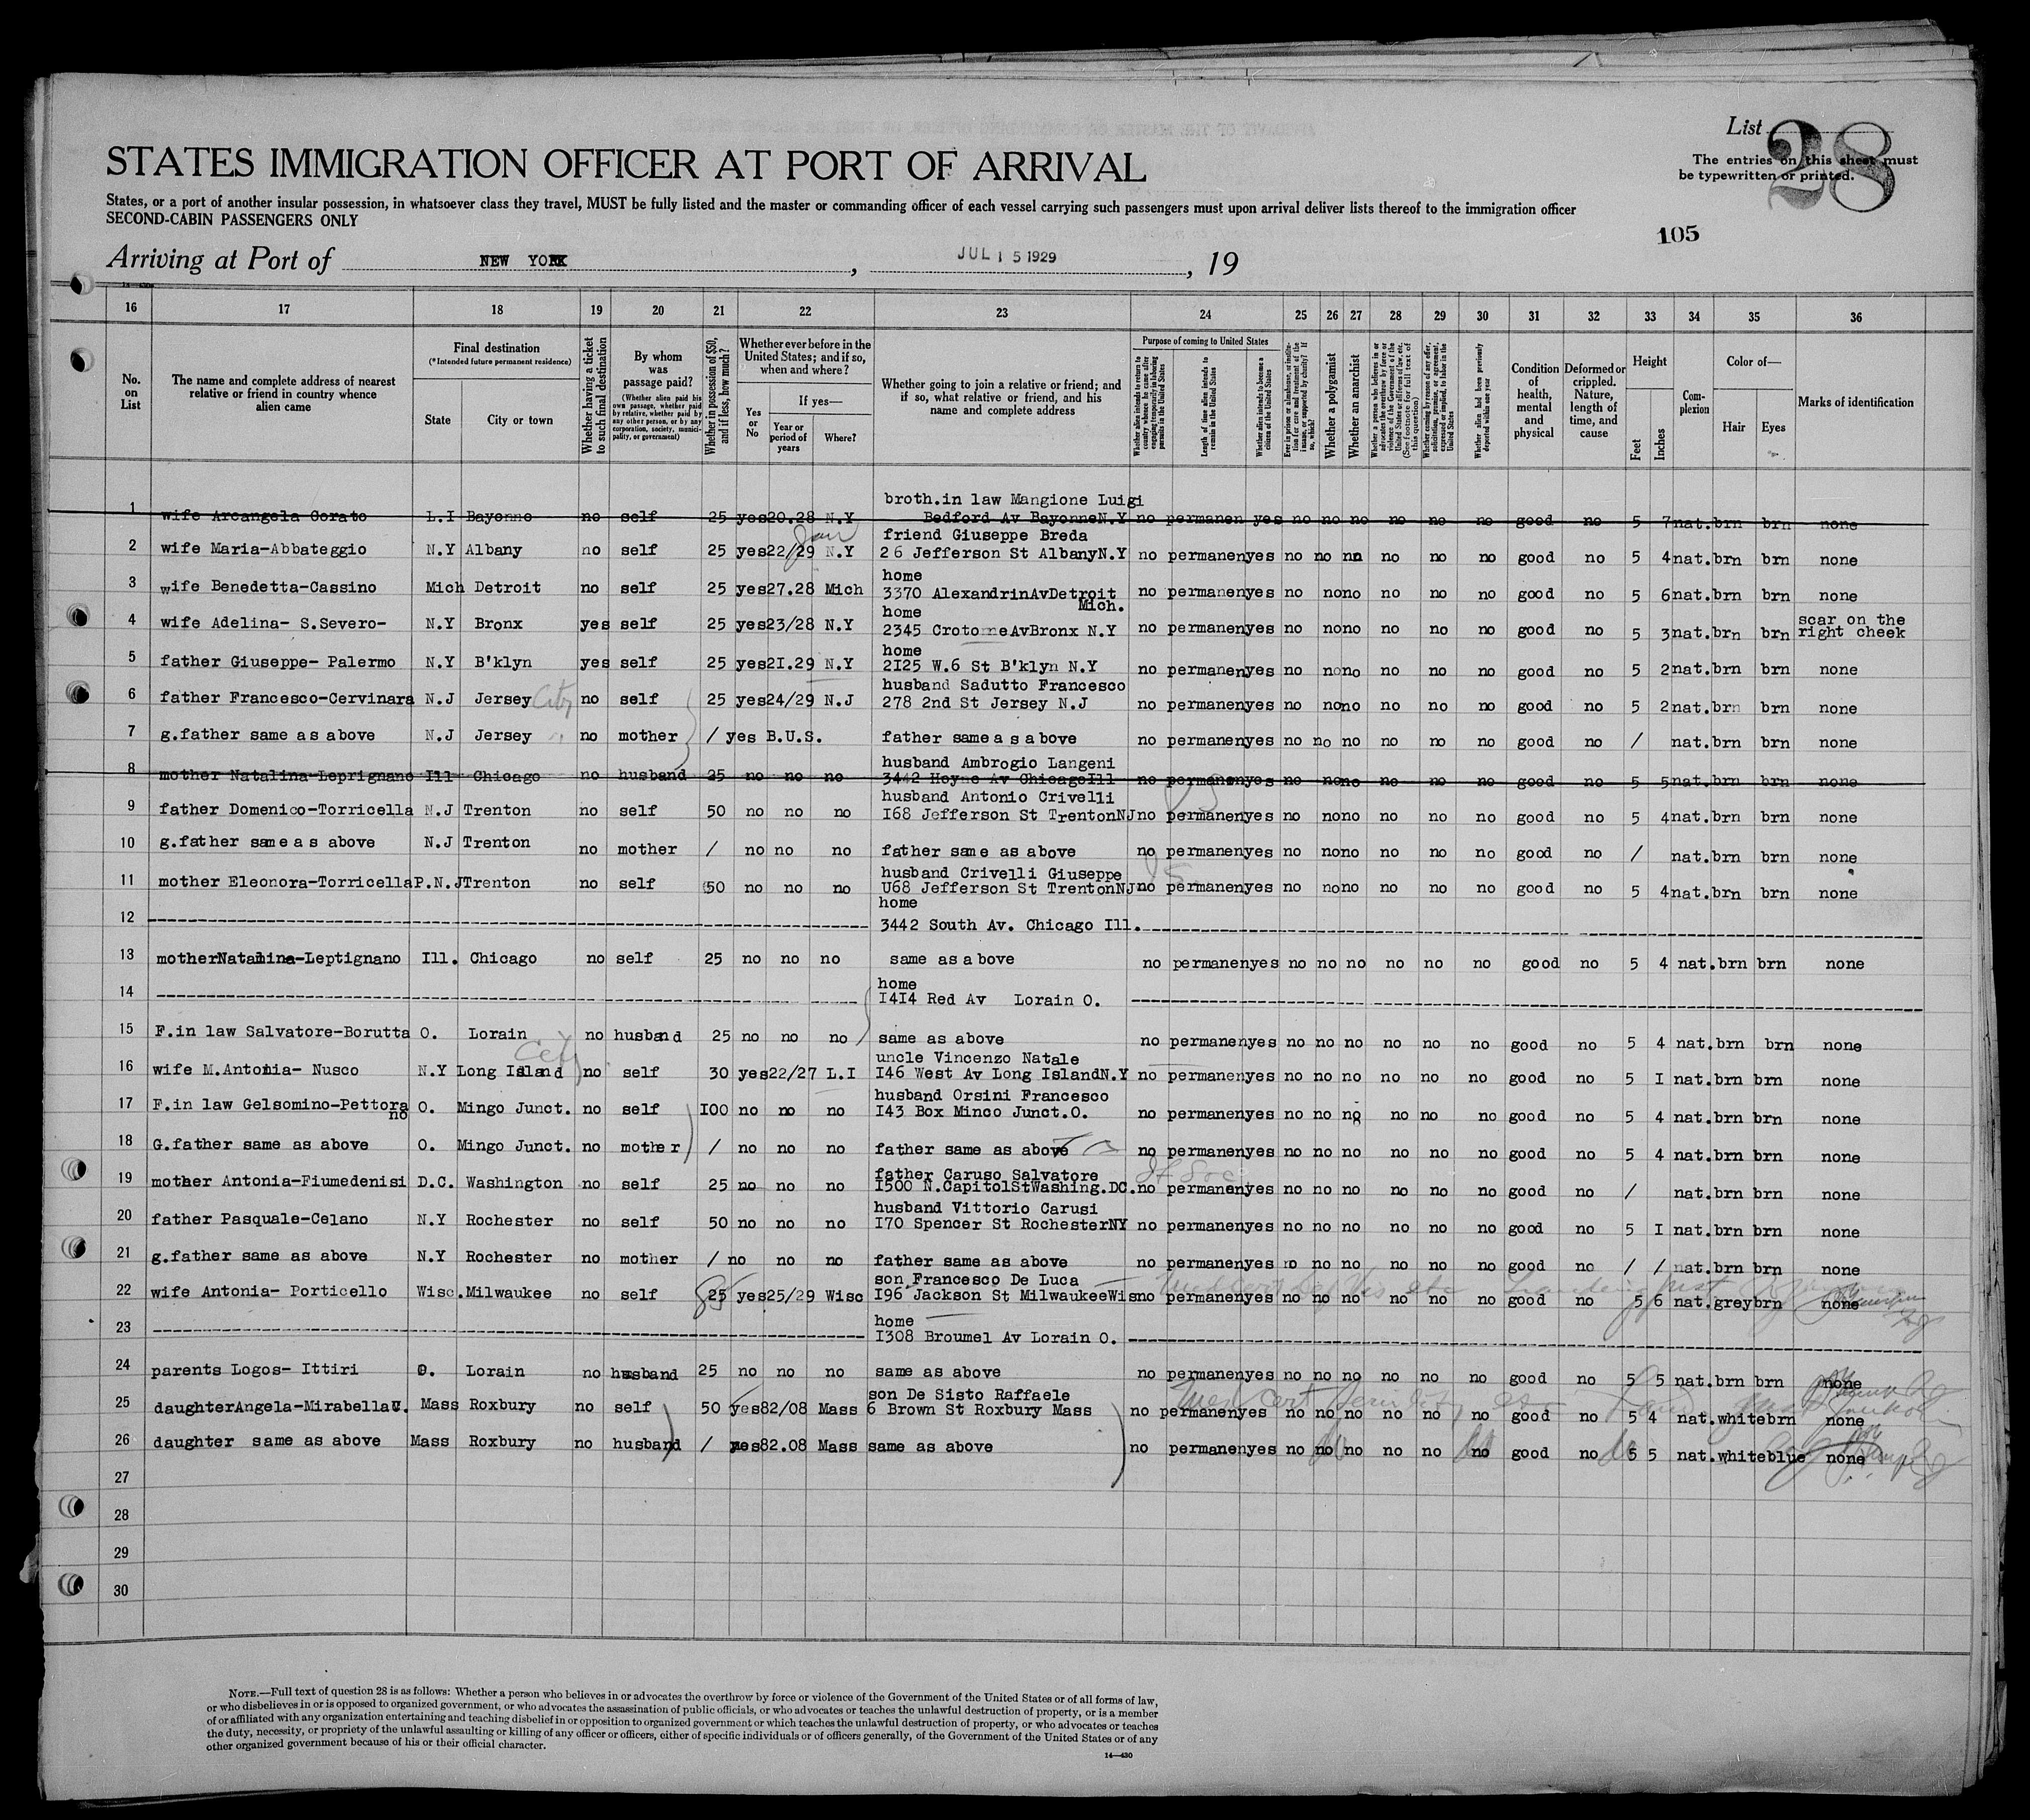 List 28
The entries on this sheet must
be typewritten or printed.
STATES IMMIGRATION OFFICER AT PORT OF ARRIVAL
States, or a port of another insular possession, in whatsoever class they travel, MUST be fully listed and the master or commanding officer of each vessel carrying such passengers must upon arrival deliver lists thereof to the immigration officer
SECOND-CABIN PASSENGERS ONLY
105
Arriving at Port of NEW YORK , JUL 15 1929 , 19
16 17 18 19 20 21 22 23 24 25 26 27 28 29 30 31 32 33 34 35 36
No. on List
The name and complete address of nearest relative or friend in country whence alien came
Final destination (*Intended future permanent residence)
State City or town
Whether having a ticket to such final destination
By whom was passage paid? (Whether alien paid his own passage, whether paid by relative, whether paid by any other person, or by any corporation, society, municipality, or government)
Whether in possession of $50, and if less, how much?
Whether ever before in the United States; and if so, when and where?
Yes or No
If yes—
Year or period of years Where?
Whether going to join a relative or friend; and if so, what relative or friend, and his name and complete address
Purpose of coming to United States
Whether alien intends to return to country whence he came after engaging temporarily in laboring pursuits in the United States
Length of time alien intends to remain in the United States
Whether alien intends to become a citizen of the United States
Ever in prison or almshouse, or institution for care and treatment of the insane, or supported by charity? If so, which?
Whether a polygamist
Whether an anarchist
Whether a person who believes in or advocates the overthrow by force or violence of the Government of the United States or all forms of law, etc. (See footnote for full text of this question)
Whether coming by reason of any offer, solicitation, promise, or agreement, expressed or implied, to labor in the United States
Whether alien had been previously deported within one year
Condition of health, mental and physical
Deformed or crippled. Nature, length of time, and cause
Height
Feet Inches
Complexion
Color of—
Hair Eyes
Marks of identification
broth.in law Mangione Luigi
1 wife Arcangela Corato L.I Bayonne no self 25 yes20.28 N.Y Bedford Av BayonneN.Y no permanen yes no no no no no no good no 5 7nat.brn brn none
Jan friend Giuseppe Breda
2 wife Maria-Abbateggio N.Y Albany no self 25 yes22/29 N.Y 26 Jefferson St AlbanyN.Y no permanenyes no no no no no no good no 5 4nat.brn brn none
home
3 wife Benedetta-Cassino Mich Detroit no self 25 yes27.28 Mich 3370 AlexandrinAvDetroit no permanenyes no nono no no no good no 5 6nat.brn brn none
Mich.
home scar on the
4 wife Adelina- S.Severo- N.Y Bronx yes self 25 yes23/28 N.Y 2345 CrotomeAvBronx N.Y no permanenyes no nono no no no good no 5 3nat.brn brn right cheek
home
5 father Giuseppe- Palermo N.Y B'klyn yes self 25 yes2I.29 N.Y 2I25 W.6 St B'klyn N.Y no permanenyes no nono no no no good no 5 2nat.brn brn none
husband Sadutto Francesco
6 father Francesco-Cervinara N.J Jersey City no self 25 yes24/29 N.J 278 2nd St Jersey N.J no permanenyes no nono no no no good no 5 2nat.brn brn none
7 g.father same as above N.J Jersey no mother / yes B.U.S. father same as above no permanenyes no no no no no no good no / nat.brn brn none
husband Ambrogio Langeni
8 mother Natalina-Leprignano Ill Chicago no husband 25 no no no 3442 Hoyne Av ChicagoIll no permanenyes no nono no no no good no 5 5nat.brn brn none
husband Antonio Crivelli
9 father Domenico-Torricella N.J Trenton no self 50 no no no I68 Jefferson St TrentonNJ no permanenyes no nono no no no good no 5 4nat.brn brn none
10 g.father same as above N.J Trenton no mother / no no no father same as above no permanenyes no nono no no no good no / nat.brn brn none
husband Crivelli Giuseppe
11 mother Eleonora-TorricellaP.N.JTrenton no self 50 no no no U68 Jefferson St TrentonNJ no permanenyes no nono no no no good no 5 4nat.brn brn none
home
12 3442 South Av. Chicago Ill.
13 motherNatalina-Leptignano Ill. Chicago no self 25 no no no same as above no permanenyes no no no no no no good no 5 4 nat.brn brn none
home
14 I4I4 Red Av Lorain O.
15 F.in law Salvatore-Borutta O. Lorain no husband 25 no no no same as above no permanenyes no no no no no no good no 5 4 nat.brn brn none
City uncle Vincenzo Natale
16 wife M.Antonia- Nusco N.Y Long Island no self 30 yes22/27 L.I I46 West Av Long IslandN.Y no permanenyes no no no no no no good no 5 I nat.brn brn none
husband Orsini Francesco
17 F.in law Gelsomino-Pettora O. Mingo Junct. no self I00 no no no I43 Box Minco Junct.O. no permanenyes no no no no no no good no 5 4 nat.brn brn none
no
18 G.father same as above O. Mingo Junct. no mother / no no no father same as above no permanenyes no no no no no no good no 5 4 nat.brn brn none
father Caruso Salvatore
19 mother Antonia-Fiumedenisi D.C. Washington no self 25 no no no I500 N.CapitolStWashing.DC. no permanenyes no no no no no no good no / nat.brn brn none
husband Vittorio Carusi
20 father Pasquale-Celano N.Y Rochester no self 50 no no no I70 Spencer St RochesterNY no permanenyes no no no no no no good no 5 I nat.brn brn none
21 g.father same as above N.Y Rochester no mother / no no no father same as above no permanenyes no no no no no no good no / / nat.brn brn none
son Francesco De Luca
22 wife Antonia- Porticello Wisc.Milwaukee no self 25 yes25/29 Wisc I96 Jackson St MilwaukeeWis no permanenyes no no no no no no good no 5 6 nat.greybrn none
home
23 I308 Broumel Av Lorain O.
24 parents Logos- Ittiri O. Lorain no husband 25 no no no same as above no permanenyes no no no no no no good no 5 5 nat.brn brn none
son De Sisto Raffaele
25 daughterAngela-MirabellaU. Mass Roxbury no self 50 yes82/08 Mass 6 Brown St Roxbury Mass no permanenyes no no no no no no good no 5 4 nat.whitebrn none
26 daughter same as above Mass Roxbury no husband / yes82.08 Mass same as above no permanenyes no no no no no no good no 5 5 nat.whiteblue none
27
28
29
30
NOTE.—Full text of question 28 is as follows: Whether a person who believes in or advocates the overthrow by force or violence of the Government of the United States or of all forms of law,
or who disbelieves in or is opposed to organized government, or who advocates the assassination of public officials, or who advocates or teaches the unlawful destruction of property, or is a member
of or affiliated with any organization entertaining and teaching disbelief in or opposition to organized government or which teaches the unlawful destruction of property, or who advocates or teaches
the duty, necessity, or propriety of the unlawful assaulting or killing of any officer or officers, either of specific individuals or of officers generally, of the Government of the United States or of any
other organized government because of his or their official character.
14—430